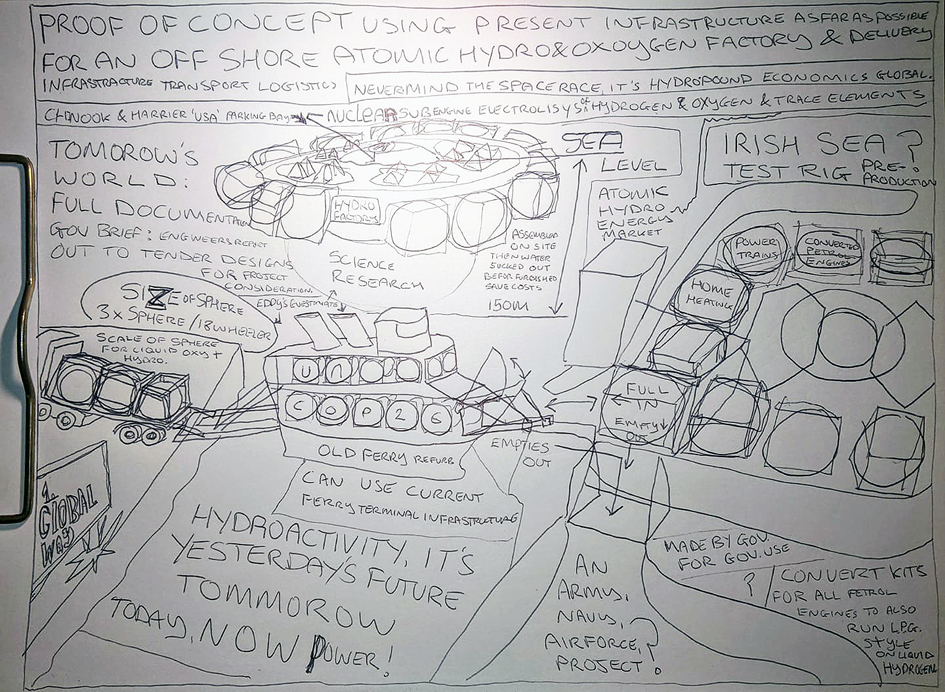 PROOF OF CONCEPT USING PRESENT INFRASTRUCTURE AS FAR AS POSSIBLE
FOR AN OFF SHORE ATOMIC HYDRO&OXOYGEN FACTORY & DELIVERY
INFRASTRACTURE TRANSPORT LOGISTICS
NEVERMIND THE SPACE RACE, IT'S HYDROPOUND ECONOMICS GLOBAL.
CHONOOK & HARRIER 'USA' PARKING BAY
NUCLEAR SUB ENGINE ELECTROLISYS OF HYDROGEN & OXYGEN & TRACE ELEMENTS
TOMOROW'S
WORLD:
FULL DOCUMENTATION
GOV BRIEF: ENGWEERS REPORT
OUT TO TENDER DESIGNS
FOR PROJECT
CONSIDERATION
HYDRO
FACTORY
SCIENCE
RESEARCH
SEA
LEVEL
ASSEMBLED
ON SITE
THEN WATER
SUCKED OUT
BEFOR FURNISHED
SAVE COSTS
150M
ATOMIC
HYDRO
ENERGY
MARKET
IRISH SEA?
TEST RIG PRE-
PRODUCTION
POWER
TRAINS
CONVERTED
PETROL
ENGINES
HOME
HEATING
SIZE OF SPHERE
3 x SPHERE/18 WHEELER
EDDY'S GUESTIMATE
SCALE OF SPHERE
FOR LIQUID OXY +
HYDRO.
UN
COP26
FULL
IN
EMPTY
OUT
EMPTIES
OUT
OLD FERRY REFURB
CAN USE CURRENT
FERRY TERMINAL INFRASTRUCTURE
1.
GLOBAL
WAY
HYDROACTIVITY, IT'S
YESTERDAY'S FUTURE
TOMMOROW
TODAY, NOW POWER!
AN
ARMY,
NAVY,
AIRFORCE,
PROJECT?
MADE BY GOV.
FOR GOV. USE
?
CONVERT KITS
FOR ALL PETROL
ENGINES TO ALSO
RUN L.P.G.
STYLE
ON LIQUID
HYDROGEN